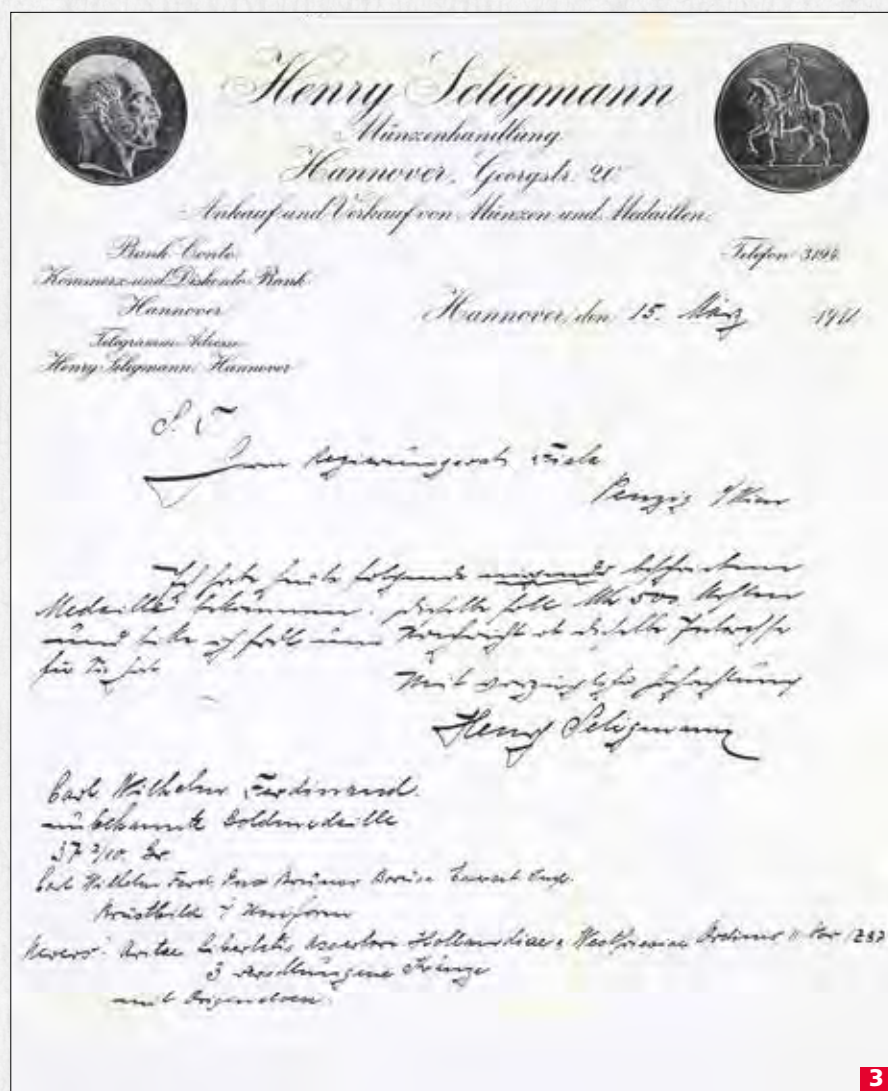 Henry Seligmann
Münzenhandlung
Hannover, Georgstr. 20
Ankauf und Verkauf von Münzen und Medaillen.
Bank-Conto:
Kommerz- und Diskonto-Bank
Hannover
Telegramm-Adresse:
Henry Seligmann, Hannover
Telefon 3194.
Hannover, den 15. März 1911.
S. T.
Herrn Regierungsrath Fiala
Penzig b/Wien
Ich habe heute folgende beschriebene
Medaille bekommen. Dieselbe soll Mk 500. kosten
und bitte ich Nachricht ob dieselbe Interesse
für Sie hat
Mit vorzüglicher Hochachtung
Henry Seligmann
Carl Wilhelm Ferdinand.
unbekannte Goldmedaille
37 2/10. Gr
Carl Wilhelm Ferd. Dux
Brustbild i Uniform
Revers: Libertatis Hollandiae Westfrisiae Ordines
3 verschlungene Kränze
mit
3